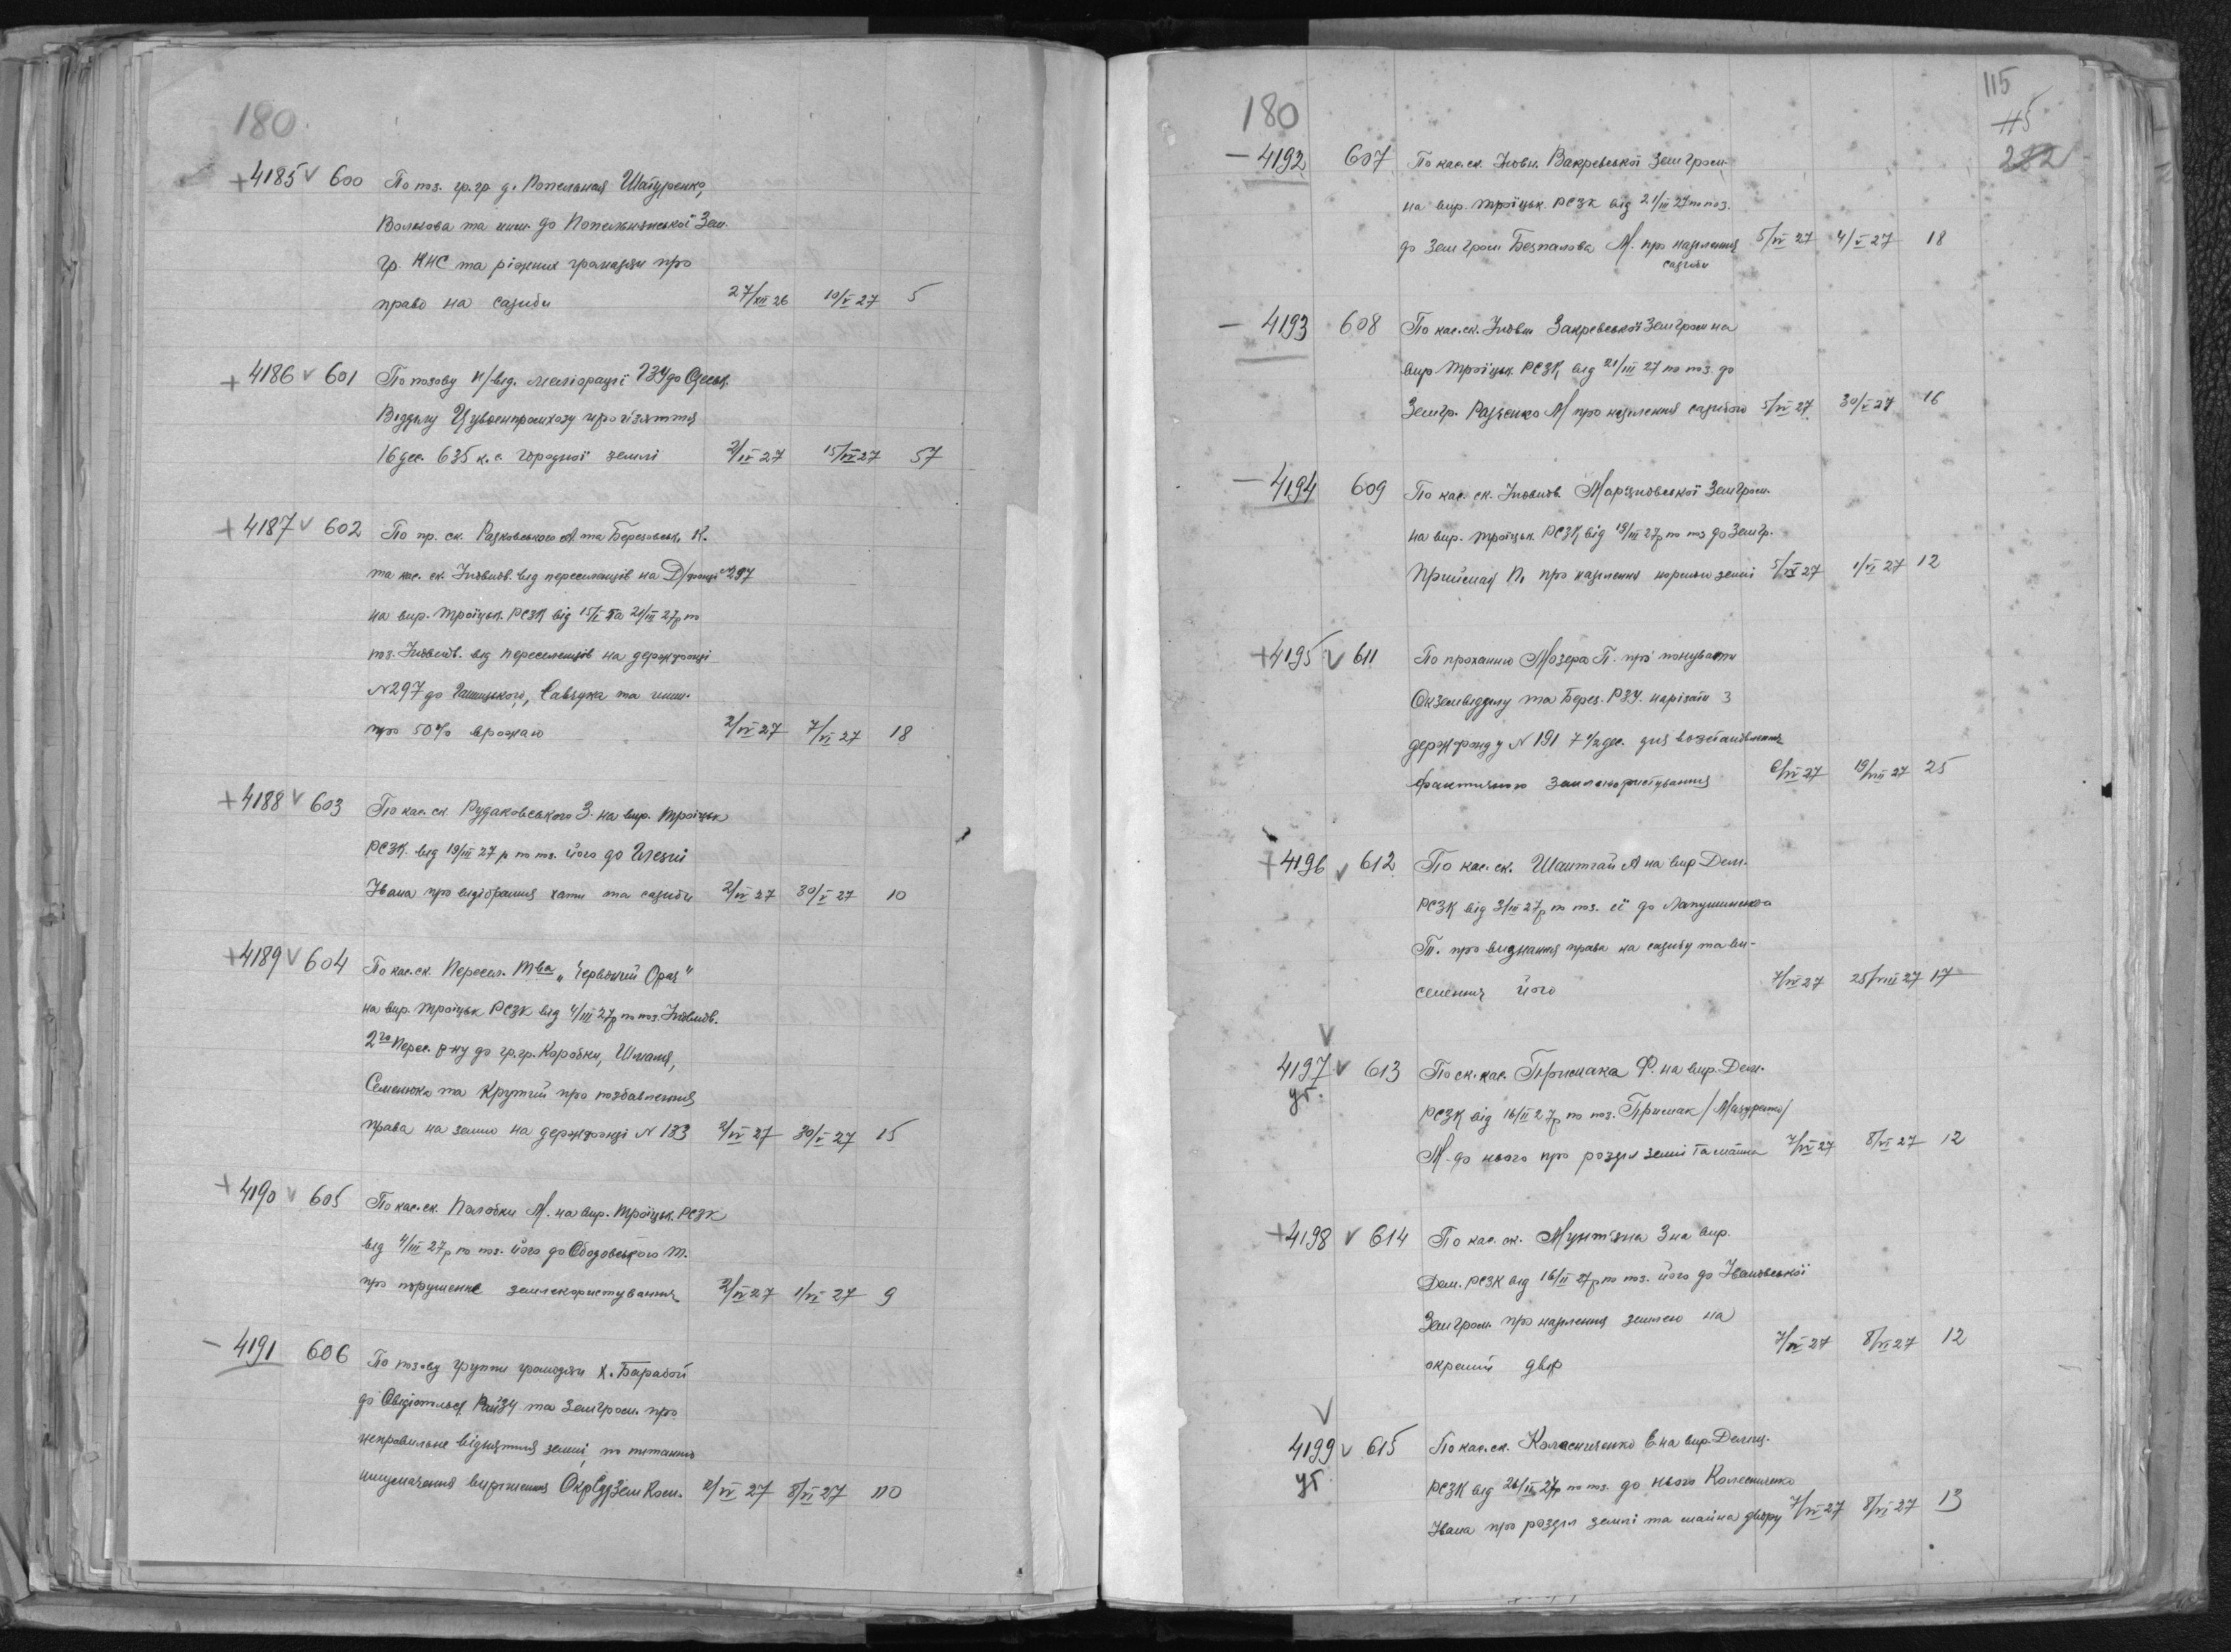 180
+4185 v 600 По поз. гр.гр д. Попельная Шапуренко,
Волкова та инш. до Попельнянської Зем.
гр. КНС та ріжних громадян про
право на садиби 27/XII 26 10/V 27 5
+ 4186 v 601 По позову п/від. меліорації ОЗУ до Одеськ.
Відділу Цувоенпромхозу про із'яття
16 дес. 635 к.с. городньої землі 2/IV 27 15/VI 27 57
+ 4187 v 602 По пр. ск. Радковського А. та Березовськ. К.
та кас. ск. Уповнов. від переселенців на Д/фонді №297
на вир. Троїцьк. РСЗК від 15/I та 21/III 27р по
поз. Уповнов. від переселенців на держфонді
№297 до Савчука та инш.
про 50% врожаю 2/IV 27 7/VI 27 18
+4188 v 603 По кас. ск. Рудаковського З. на вир. Троїцьк
РСЗК. від 19/III 27 р по поз. його до
Івана про відібрання хати та садиби 2/IV 27 30/V 27 10
+4189 v 604 По кас. ск. Пересел. Тва „Червоний Орач"
на вир. Троїцьк РСЗК від 4/III 27р по поз. Уповнов.
2го Перес. р-ну до гр.гр. Коробки, Шмаля,
Семенюка та Крутий про позбавлення
права на землю на держфонді №183 2/IV 27 30/V 27 15
+ 4190 v 605 По кас. ск. Палобки М. на вир. Троїцьк. РСЗК
від 4/III 27р по поз. його до Ободовського Т.
про порушення землекористування 2/IV 27 1/VI 27 9
– 4191 606 По позову группи громадян х. Барабой
до Овідіопільськ РайЗУ таЗемгром. про
неправильне відняття землі, по питанню
вирішення ОкрСудЗемКом. 2/IV 27 8/VI 27 110
180
115
115
222
– 4192 607 По кас. ск. Уповн. Закревської Земгром.
на вир. Троїцьк. РСЗК від 21/III 27 по поз.
до Земгром Безпалова М. про наділення садиби 5/IV 27 4/V 27 18
– 4193 608 По кас. ск. Уповн Закревської Земгром на
вир Троїцьк. РСЗК від 21/III 27 по поз. до
Земгр. Радченко М про наділення садибою 5/IV 27 30/V 27 16
– 4194 609 По кас. ск. Уповнов. Мардиновської Земгром.
на вир. Троїцьк. РСЗК від 19/III 27р по поз до Земгр.
Приймач П. про наділення нормою землі 5/IV 27 1/VI 27 12
+4195 v 611 По проханню Мозера П. про понувати
Окземвідділу та Берез. РЗУ. нарізати з
держфонду №191 7 1/2 дес. для возстановлення
фактичного землекористування 6/IV 27 19/VIII 27 25
+4196 v 612 По кас. ск. Шамтай А на вир Дем.
РСЗК від 3/III 27р по поз. її до Лапушинського
Т. про визнання права на садибу та ви-
селення його 7/IV 27 25/VIII 27 17
v
4197 v 613 По ск. кас. Примака Ф. на вир. Дем.
уг. РСЗК від 16/II 27р по поз. Примак /Мазуренко/
М. до нього про розділ землі та майна 7/IV 27 8/VI 27 12
+4198 v 614 По кас. ск. Мунтяна З на вир.
Дем. РСЗК від 16/II 27р по поз. його до Івановської
Земгром. про наділення землею на
окремий двір 7/IV 27 8/VI 27 12
v
4199 v 615 По кас. ск. Колесниченко Е на вир. Демид.
уг РСЗК від 26/II 27р по поз. до нього Колесниченко
Івана про розділ землі та майна двору 7/IV 27 8/VI 27 13